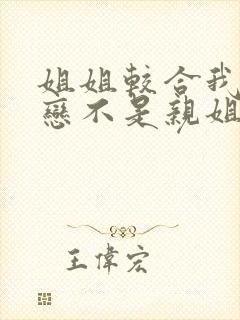 姐姐較合我
戀不是親姐
王偉宏